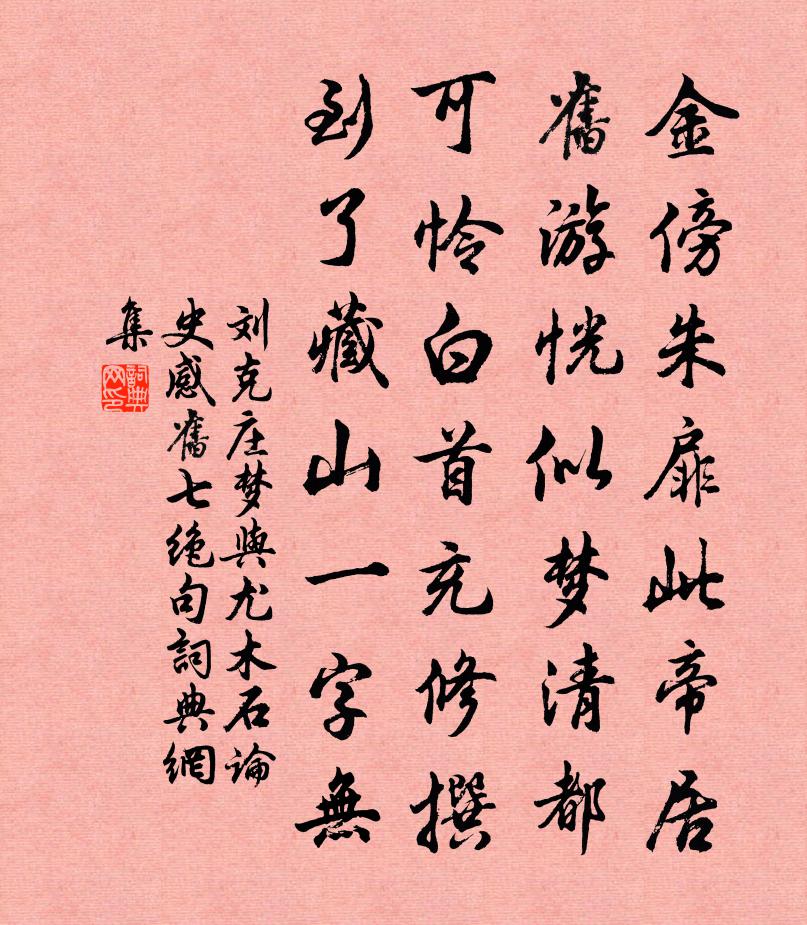 金傍朱扉此帝居
舊游恍似梦清都
可怜白首充修撰
到了藏山一字無
刘克庄梦與尤木石論
史感舊七绝句詞典網
集
詞典
网印